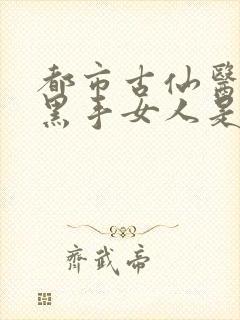 都市古仙醫
黑手女人是
齊武帝